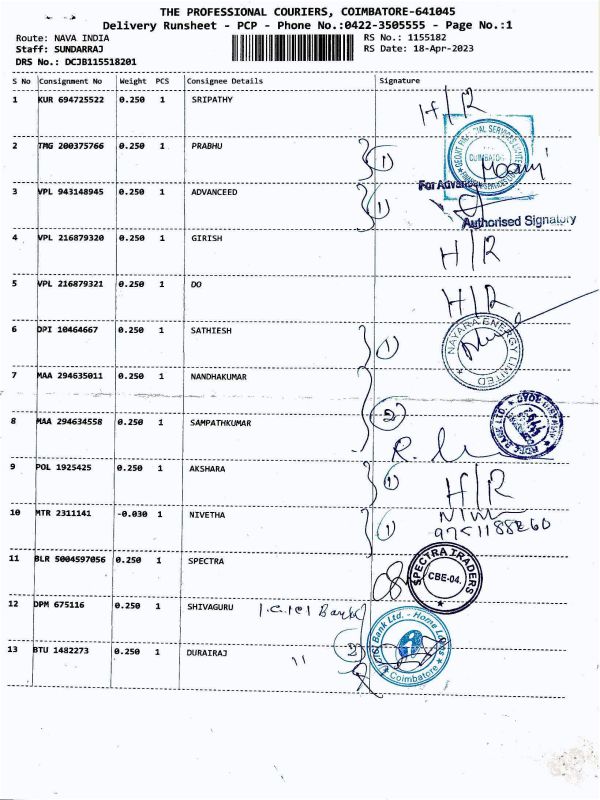 THE PROFESSIONAL COURIERS, COIMBATORE-641045
Delivery Runsheet - PCP - Phone No.:0422-3505555 - Page No.:1
Route: NAVA INDIA RS No.: 1155182
Staff: SUNDARRAJ RS Date: 18-Apr-2023
DRS No.: DCJB115518201
S No Consignment No Weight PCS Consignee Details Signature
1 KUR 694725522 0.250 1 SRIPATHY H/R
2 TMG 200375766 0.250 1 PRABHU 1
COIMBATORE
For Advance
3 VPL 943148945 0.250 1 ADVANCEED 1
Authorised Signatory
4 VPL 216879320 0.250 1 GIRISH H/R
5 VPL 216879321 0.250 1 DO H/R
6 DPI 10464667 0.250 1 SATHIESH 1
NAYARA ENERGY LIMITED
7 MAA 294635011 0.250 1 NANDHAKUMAR
8 MAA 294634558 0.250 1 SAMPATHKUMAR 2
9 POL 1925425 0.250 1 AKSHARA 1 H/R
10 MTR 2311141 -0.030 1 NIVETHA 1
11 BLR 5004597056 0.250 1 SPECTRA
SPECTRA TRADERS
CBE-04.
12 DPM 675116 0.250 1 SHIVAGURU I.C.I.C.I Bank
ICICI Bank Ltd. - Home Loans
Coimbatore
13 BTU 1482273 0.250 1 DURAIRAJ 11 2